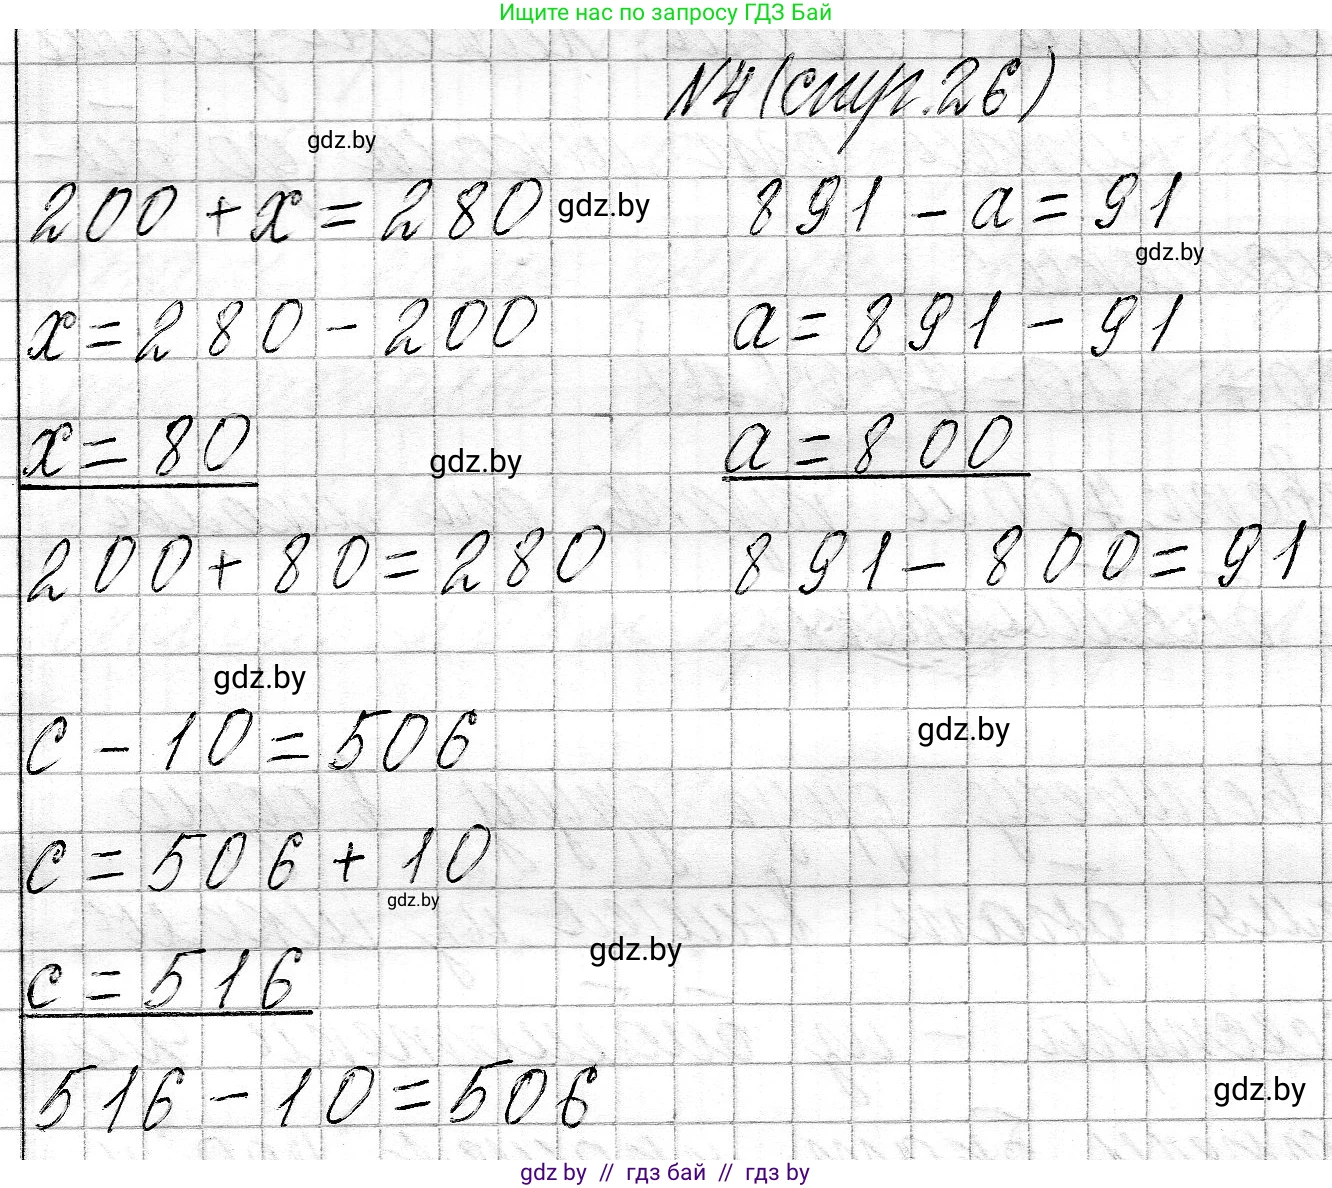 Ищите нас по запросу ГДЗ Бай
№4 (стр. 26)
gdz.by
200 + x = 280
gdz.by
891 - a = 91
gdz.by
x = 280 - 200
a = 891 - 91
x = 80
gdz.by
a = 800
200 + 80 = 280
891 - 800 = 91
gdz.by
c - 10 = 506
gdz.by
c = 506 + 10
gdz.by
gdz.by
c = 516
516 - 10 = 506
gdz.by
gdz by // гдз бай // гдз by